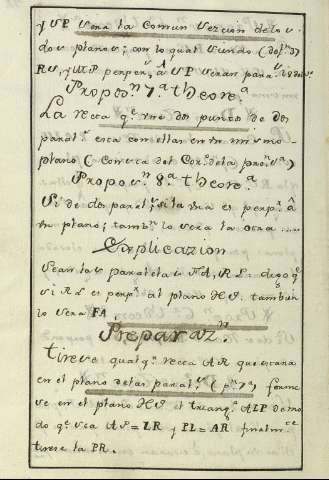 y VP sera la Comun seccion de los
dos planos; con lo qual siendo (def. 3)
RV, y MP perpen.s à VP seran paral.s
Propos.n 7.a theore.a
La recta q.e une dos puntos de dos
paral.s esta con ellas en un mismo
plano (Converta del Cor. de la pro.s)
Propos.n 8.a theore.a
Si de dos paral.s si la una es perp.r â
un plano; tamb.n lo sera la otra .....
Explicazion
Sean las paralelas FA, RL: digo q.e
si RL es perp.r al plano HI tambien
lo sera FA
Preparaz.n
tirese qualq.r recta AR que estara
en el plano de las paral.s (p.n 7.a) forme
se en el plano HI el triang.o ALP de mo
do q.e sea AP = LR y PL = AR finalm.te
tirese la PR.